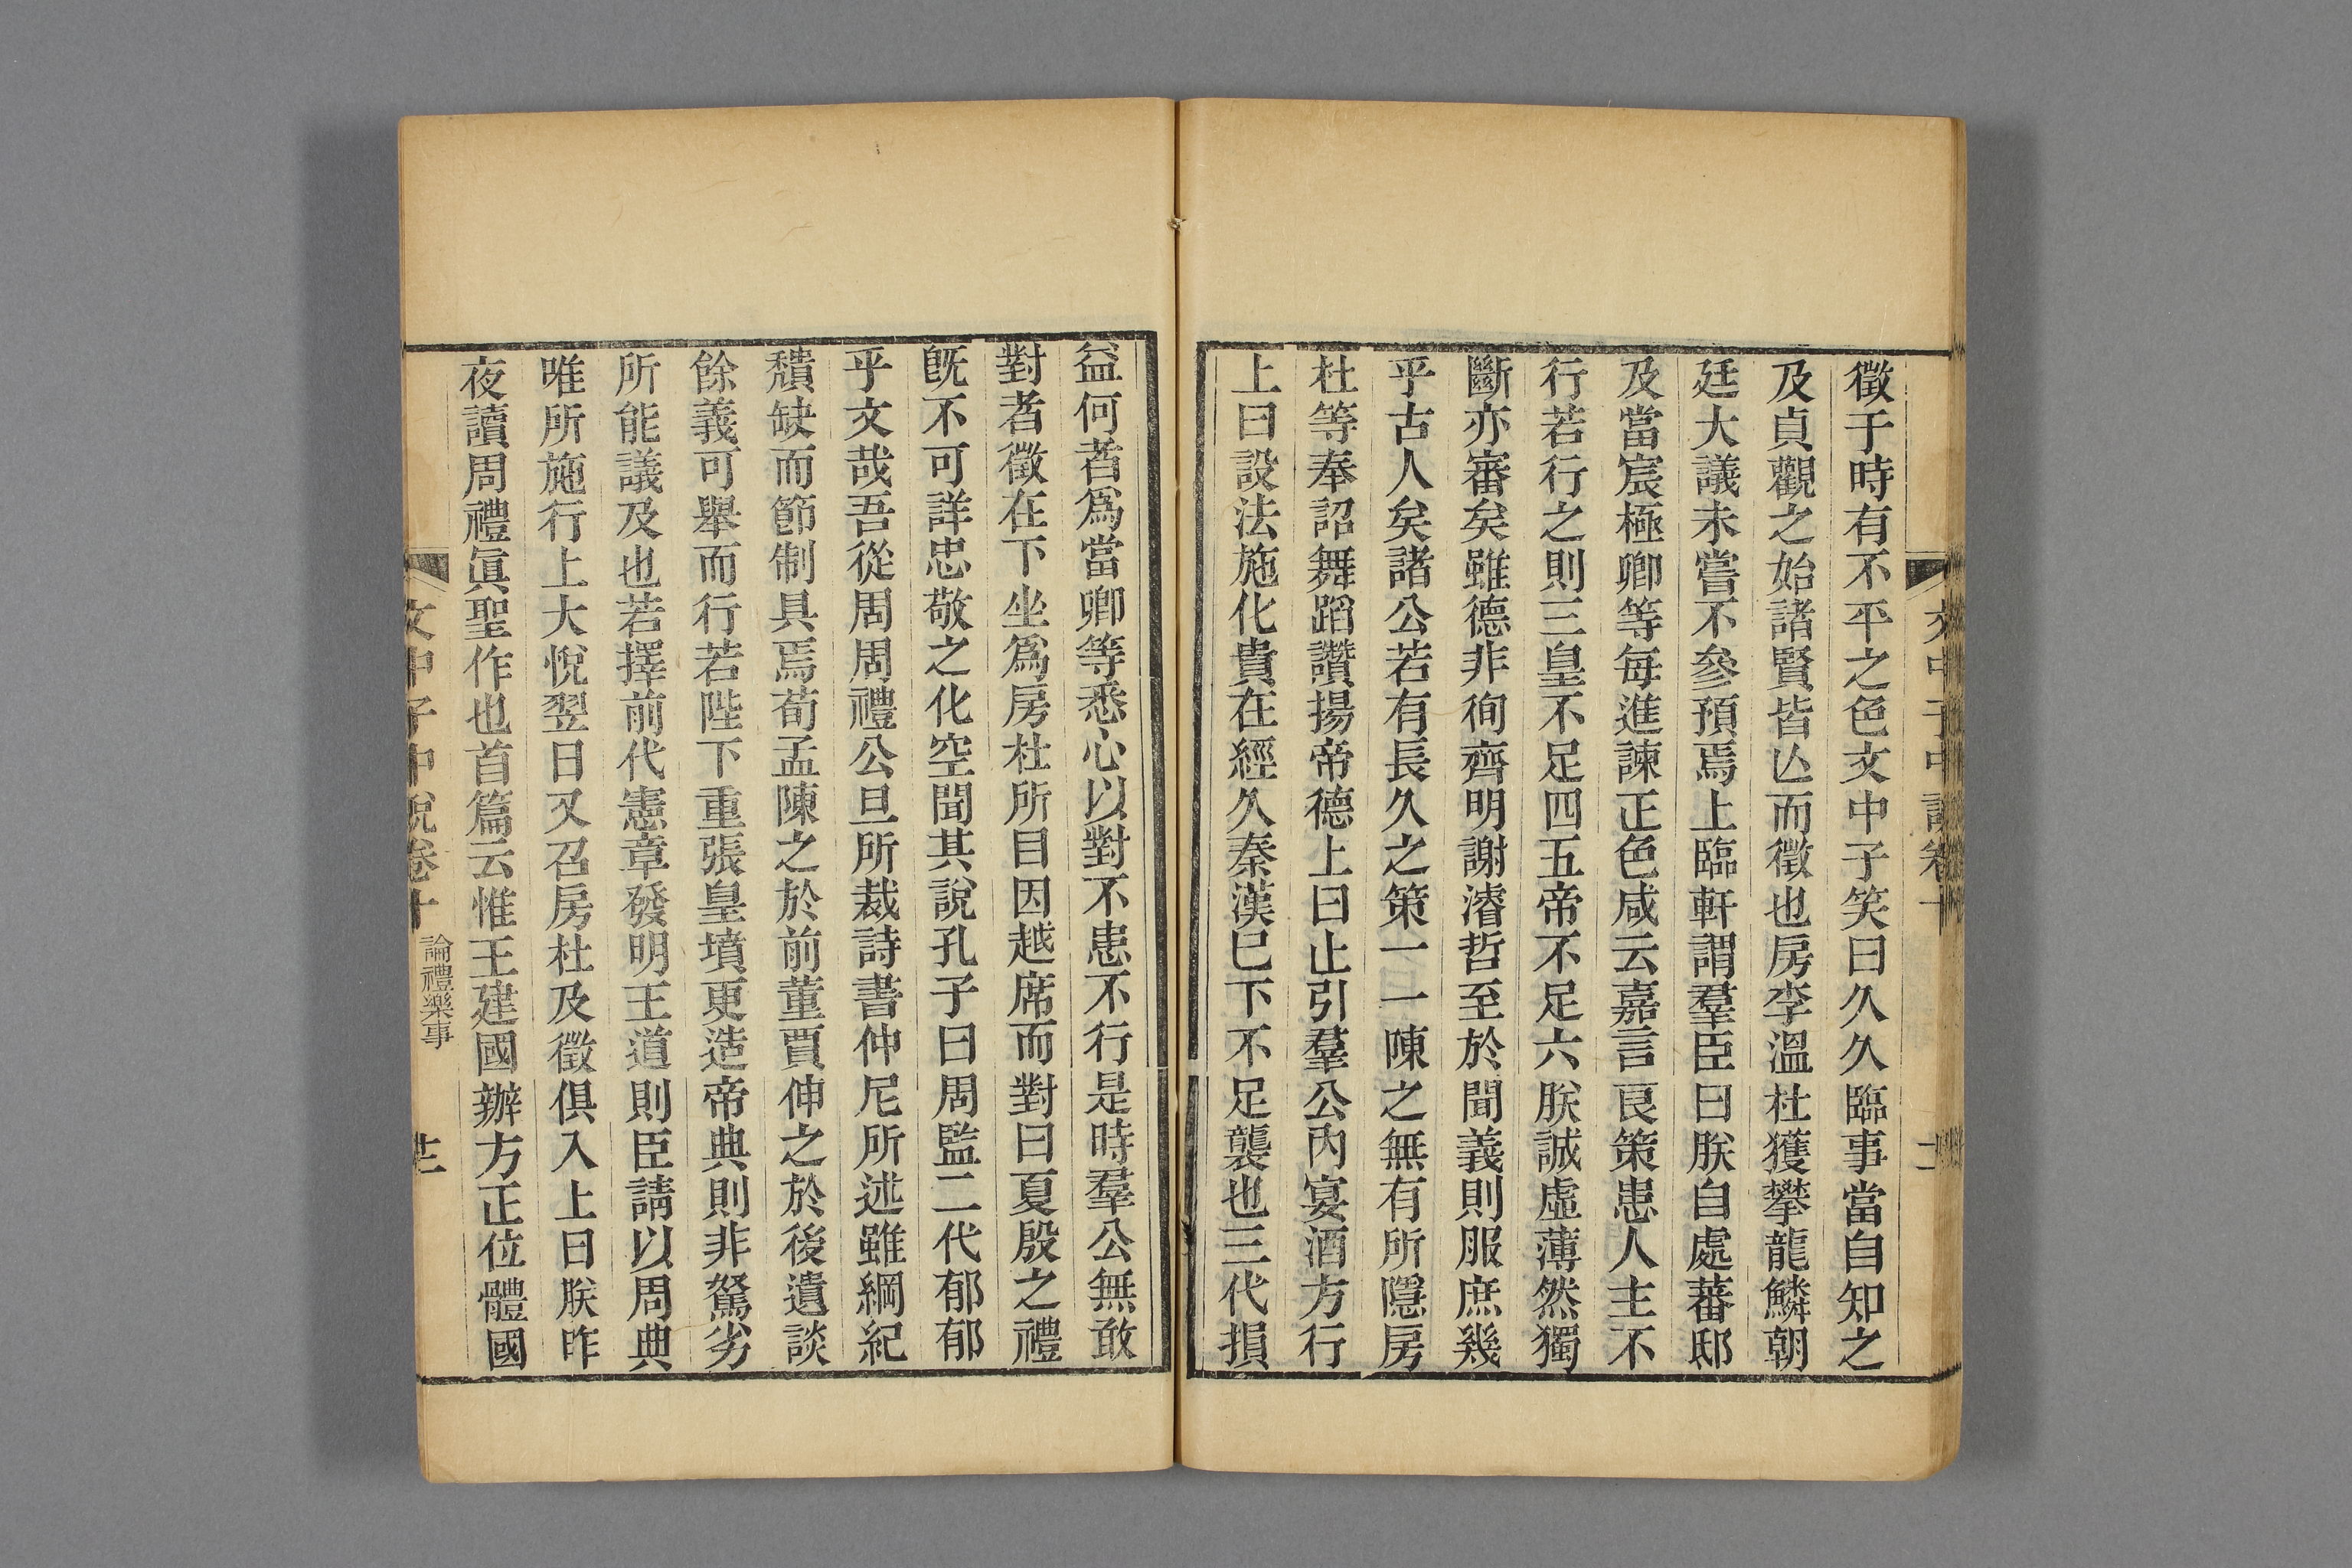 徵于時有不平之色文中子笑曰久久臨事當自知之
及貞觀之始諸賢皆亾而徵也房李溫杜獲攀龍鱗朝
廷大議未嘗不參預焉上臨軒謂羣臣曰朕自處蕃邸
及當宸極卿等每進諫正色咸云嘉言良策患人主不
行若行之則三皇不足四五帝不足六朕誠虛薄然獨
斷亦審矣雖德非徇齊明謝濬哲至於聞義則服庶幾
乎古人矣諸公若有長久之策一一陳之無有所隱房
杜等奉詔舞蹈讚揚帝德上曰止引羣公內宴酒方行
上曰設法施化貴在經久秦漢巳下不足襲也三代損
益何者爲當卿等悉心以對不患不行是時羣公無敢
對者徵在下坐爲房杜所目因越席而對曰夏殷之禮
旣不可詳忠敬之化空聞其說孔子曰周監二代郁郁
乎文哉吾從周周禮公旦所裁詩書仲尼所述雖綱紀
穨缺而節制具焉荀孟陳之於前董賈伸之於後遺談
餘義可舉而行若陛下重張皇墳更造帝典則非駑劣
所能議及也若擇前代憲章發明王道則臣請以周典
唯所施行上大悅翌日又召房杜及徵俱入上曰朕昨
夜讀周禮眞聖作也首篇云惟王建國辦方正位體國
文中子中說卷十 論禮樂事